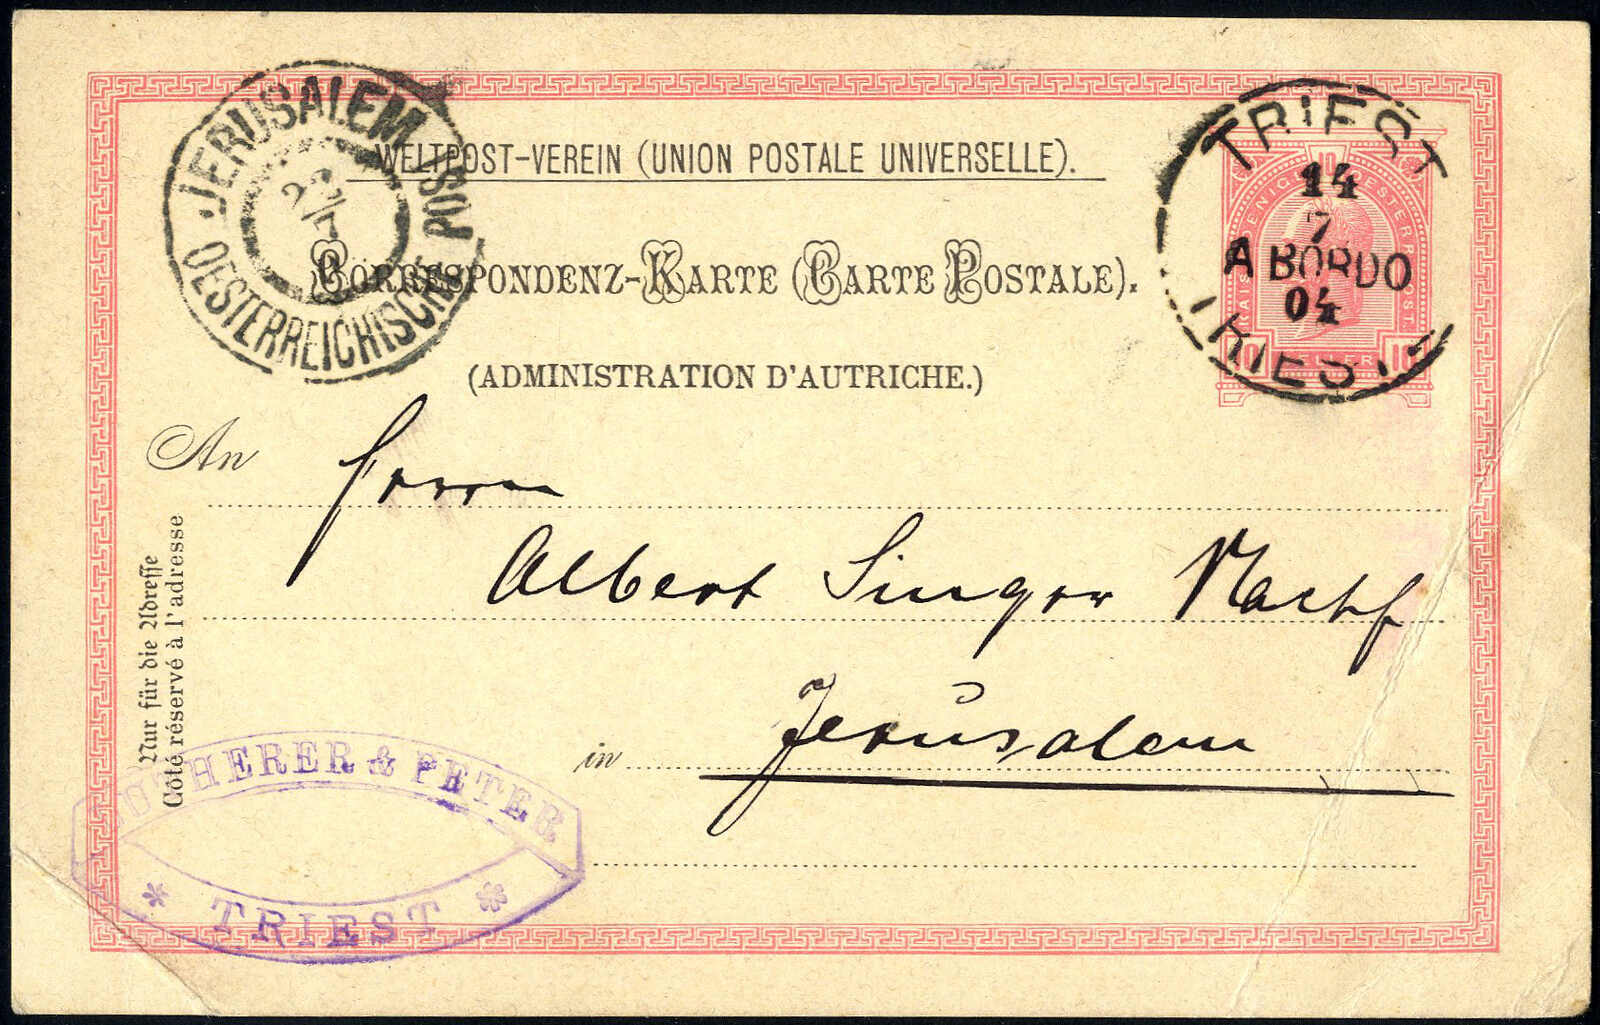 JERUSALEM
OESTERREICHISCHE POST
WELTPOST-VEREIN (UNION POSTALE UNIVERSELLE).
CORRESPONDENZ-KARTE (CARTE POSTALE).
(ADMINISTRATION D'AUTRICHE.)
TRIEST
14
7
A BORDO
04
TRIESTE
10 HELLER 10
An Herrn
Albert Singer Nachf
in Jerusalem
Nur für die Adresse
Côté réservé à l'adresse
& PETER
* TRIEST *